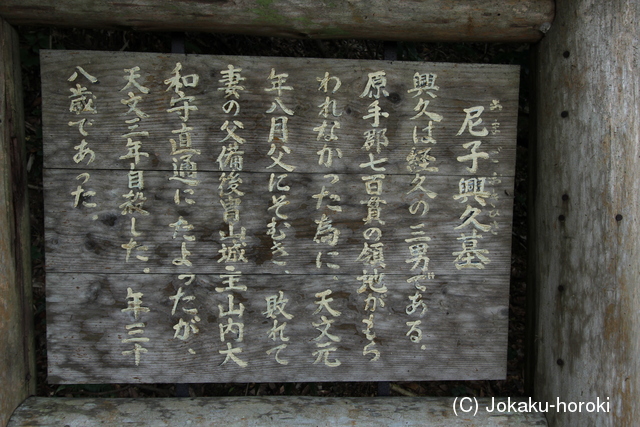 尼子興久墓
興久は經久の三男である.
原手郡七百貫の領地がもら
われなかった為に 天文元
年八月父にそむき、敗れて
妻の父備後甲山城主山内大
和守直通にたよったが、
天文三年自殺した、年三十
八歳であった.
(C) Jokaku-horoki